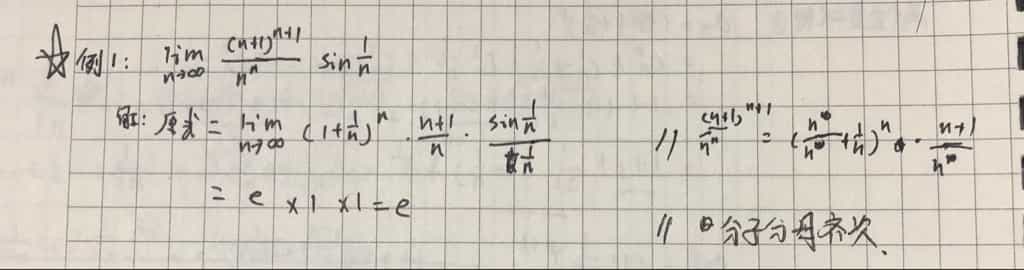 ☆例1: lim n→∞ (n+1)^(n+1) / n^n sin 1/n
解: 原式 = lim n→∞ (1+1/n)^n · (n+1)/n · (sin 1/n)/(1/n) // (n+1)^(n+1) / n^n = (n/n + 1/n)^n · (n+1)/n
= e × 1 × 1 = e
// 分子分母齐次.